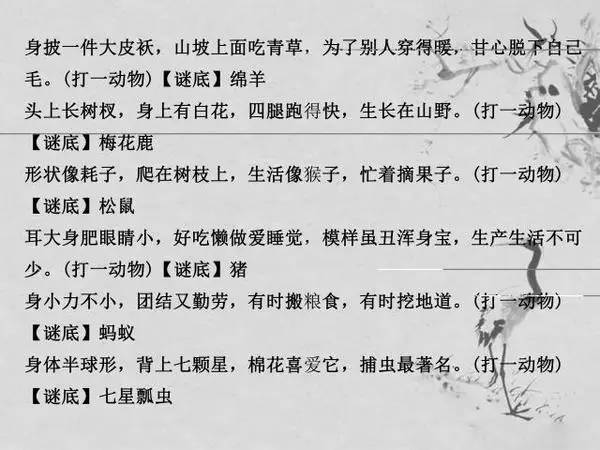 身披一件大皮袄，山坡上面吃青草，为了别人穿得暖，甘心脱下自己
毛。(打一动物)【谜底】绵羊
头上长树杈，身上有白花，四腿跑得快，生长在山野。(打一动物)
【谜底】梅花鹿
形状像耗子，爬在树枝上，生活像猴子，忙着摘果子。(打一动物)
【谜底】松鼠
耳大身肥眼睛小，好吃懒做爱睡觉，模样虽丑浑身宝，生产生活不可
少。(打一动物)【谜底】猪
身小力不小，团结又勤劳，有时搬粮食，有时挖地道。(打一动物)
【谜底】蚂蚁
身体半球形，背上七颗星，棉花喜爱它，捕虫最著名。(打一动物)
【谜底】七星瓢虫